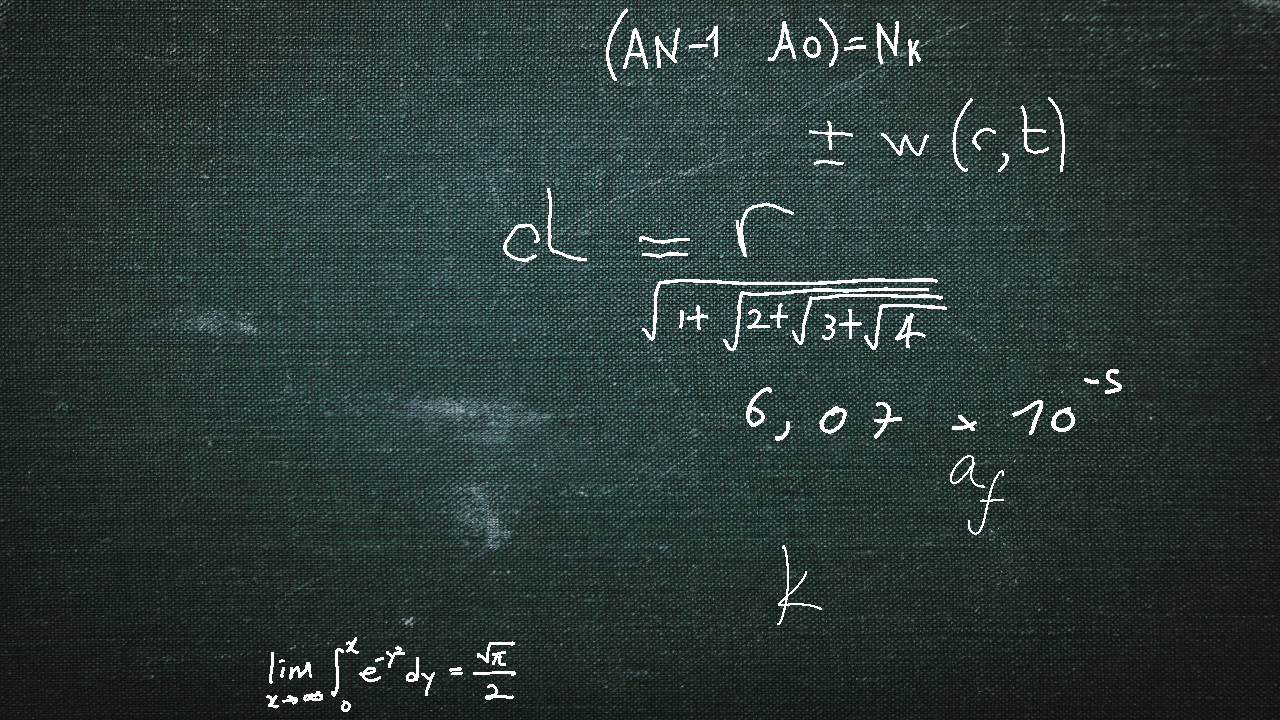 (AN-1 A0)=NK
± w (r,t)
d = r
√1+√2+√3+√4
6,07 x 10⁻⁵
a_f
k
lim x→∞ ∫₀ˣ e^-y² dy = √π/2